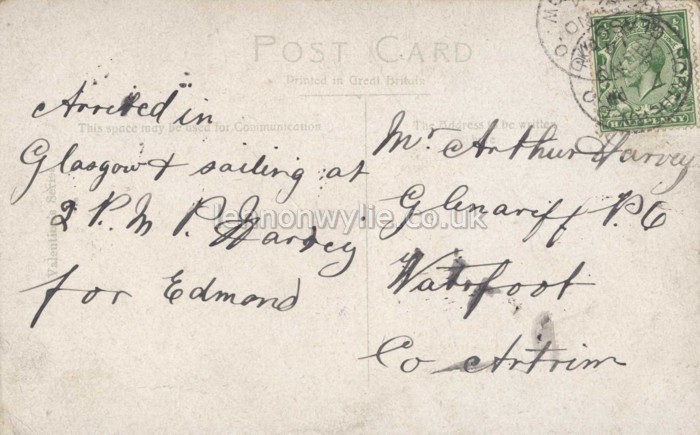 POST CARD
Printed in Great Britain
This space may be used for Communication
The Address to be written
Valentines Series
Arrived in
Glasgow & sailing at
2 P. M P. Harvey
for Edmond
Mr Arthur Harvey
Glenariff P. O
Waterfoot
Co Antrim
lennonwylie.co.uk
GLASGOW
HALFPENNY